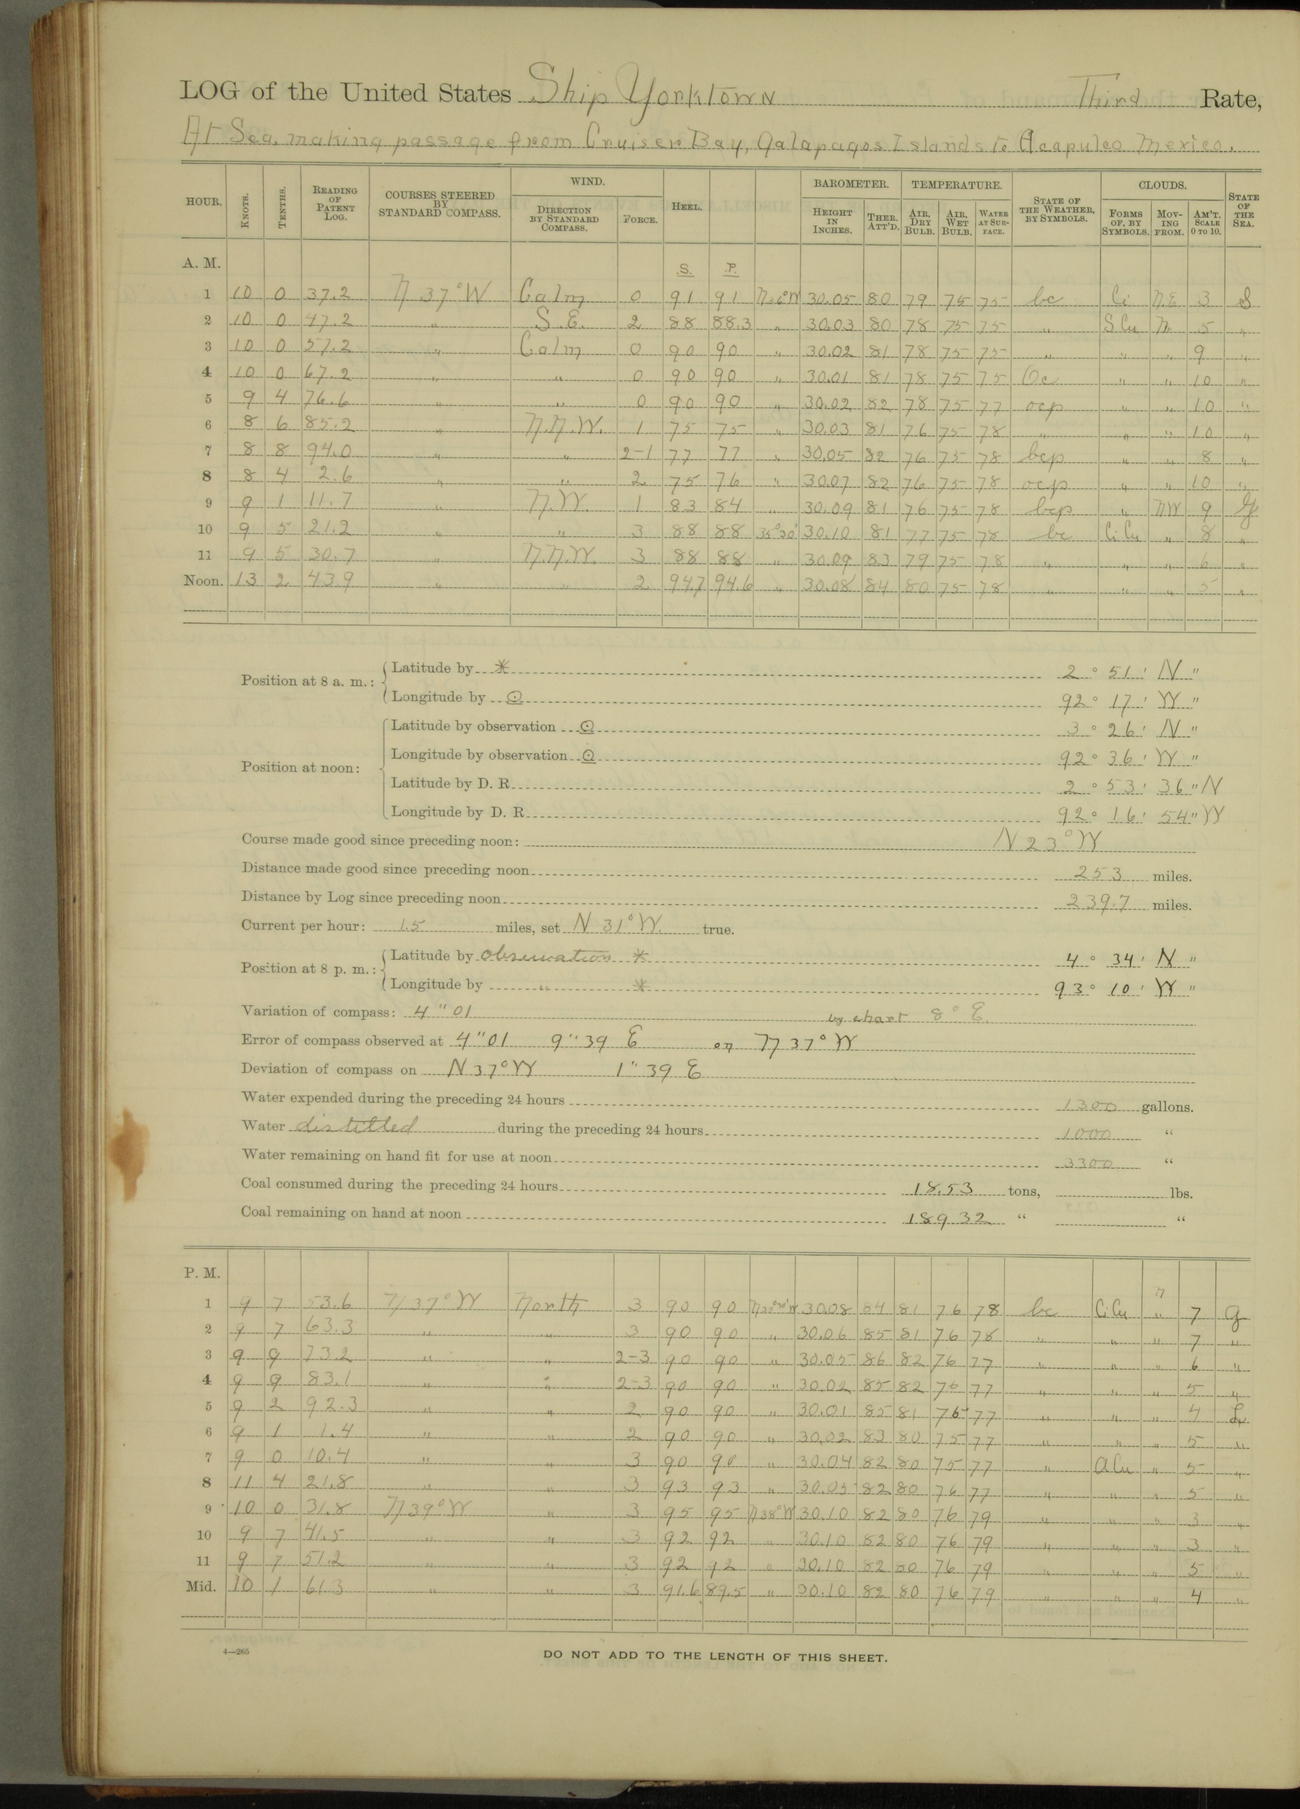 LOG of the United States Ship Yorktown Third Rate,
At Sea, making passage from Cruiser Bay, Galapagos Islands to Acapulco Mexico.
HOUR. KNOTS. TENTHS. READING OF PATENT LOG. COURSES STEERED BY STANDARD COMPASS. WIND. DIRECTION BY STANDARD COMPASS. FORCE. HEEL. BAROMETER. HEIGHT IN INCHES. THER. ATT'D. TEMPERATURE. AIR, DRY BULB. AIR, WET BULB. WATER AT SURFACE. STATE OF THE WEATHER, BY SYMBOLS. CLOUDS. FORMS OF, BY SYMBOLS. MOVING FROM. AM'T. SCALE 0 TO 10. STATE OF THE SEA.
A. M. S. P.
1 10 0 37.2 N 37° W Calm 0 91 91 N36°W 30.05 80 79 75 75 bc Ci N.E. 3 S
2 10 0 47.2 " S.E. 2 88 88.3 " 30.03 80 78 75 75 " S Cu N 5 "
3 10 0 57.2 " Calm 0 90 90 " 30.02 81 78 75 75 " " " 9 "
4 10 0 67.2 " " 0 90 90 " 30.01 81 78 75 75 Oc " " 10 "
5 9 4 76.6 " " 0 90 90 " 30.02 82 78 75 77 ocp " " 10 "
6 8 6 85.2 " N.N.W. 1 75 75 " 30.03 81 76 75 78 " " " 10 "
7 8 8 94.0 " " 2-1 77 77 " 30.05 82 76 75 78 bcp " " 8 "
8 8 4 2.6 " " 2 75 76 " 30.07 82 76 75 78 ocp " " 10 "
9 9 1 11.7 " N.W. 1 83 84 " 30.09 81 76 75 78 bcp " NW 9 g
10 9 5 21.2 " " 3 88 88 35°30' 30.10 81 77 75 78 bc Ci Cu " 8 "
11 9 5 30.7 " N.N.W. 3 88 88 " 30.09 83 79 75 78 " " " 6 "
Noon. 13 2 43.9 " " 2 94.7 94.6 " 30.08 84 80 75 78 " " " 5 "
Position at 8 a. m.: Latitude by * 2 ° 51 ' N "
Longitude by ☉ 92 ° 17 ' W "
Position at noon: Latitude by observation ☉ 3 ° 26 ' N "
Longitude by observation ☉ 92 ° 36 ' W "
Latitude by D. R. 2 ° 53 ' 36 " N
Longitude by D. R. 92 ° 16 ' 54 " W
Course made good since preceding noon: N 23° W
Distance made good since preceding noon 253 miles.
Distance by Log since preceding noon 239.7 miles.
Current per hour: 1.5 miles, set N 31° W. true.
Position at 8 p. m.: Latitude by observation * 4 ° 34 ' N "
Longitude by " * 93 ° 10 ' W "
Variation of compass: 4" 01 by chart 8° E.
Error of compass observed at 4" 01 9" 39 E on N 37° W
Deviation of compass on N 37° W 1" 39 E
Water expended during the preceding 24 hours 1300 gallons.
Water distilled during the preceding 24 hours 1000 "
Water remaining on hand fit for use at noon 3300 "
Coal consumed during the preceding 24 hours 18.53 tons, lbs.
Coal remaining on hand at noon 189 32 " "
P. M.
1 9 7 53.6 N 37° W North 3 90 90 30.08 84 81 76 78 bc Ci Cu N " 7 g
2 9 7 63.3 " " 3 90 90 " 30.06 85 81 76 78 " " " 7 "
3 9 9 73.2 " " 2-3 90 90 " 30.05 86 82 76 77 " " " 6 "
4 9 9 83.1 " " 2-3 90 90 " 30.02 85 82 76 77 " " " 5 "
5 9 2 92.3 " " 2 90 90 " 30.01 85 81 76 77 " " " 4 L
6 9 1 1.4 " " 2 90 90 " 30.02 83 80 75 77 " " " 5 "
7 9 0 10.4 " " 3 90 90 " 30.04 82 80 75 77 " a Cu " 5 "
8 11 4 21.8 " " 3 93 93 " 30.05 82 80 76 77 " " " 5 "
9 10 0 31.8 N 39° W " 3 95 95 N38°W 30.10 82 80 76 79 " " " 3 "
10 9 7 41.5 " " 3 92 92 " 30.10 82 80 76 79 " " " 3 "
11 9 7 51.2 " " 3 92 92 " 30.10 82 80 76 79 " " " 5 "
Mid. 10 1 61.3 " " 3 91.6 89.5 " 30.10 82 80 76 79 " " " 4 "
4—265
DO NOT ADD TO THE LENGTH OF THIS SHEET.